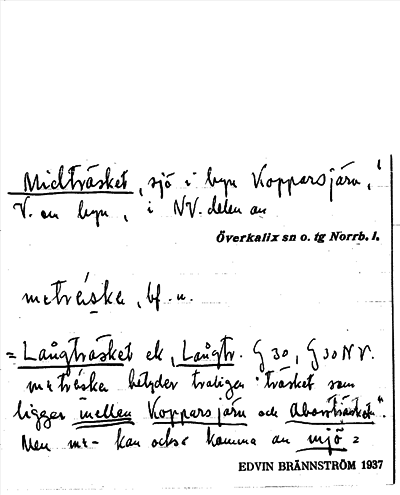 Midträsket, sjö i byn Kopparsjärn,
V. om byn, i NV. delen av
Överkalix sn o. tg Norrb. l.
metrèska, bf. n.
= Långträsket ek, Långtr. G 30, G 30 NV.
me tréska betyder troligen "träsket som
ligger mellan Kopparsjärn och Aborrträsket".
Men me- kan också komma av mjö =
EDVIN BRÄNNSTRÖM 1937